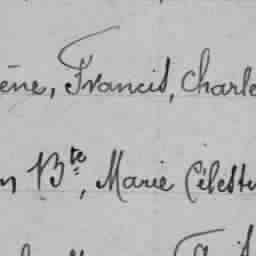 ène, Francis, Charle
n Bte, Marie Célest